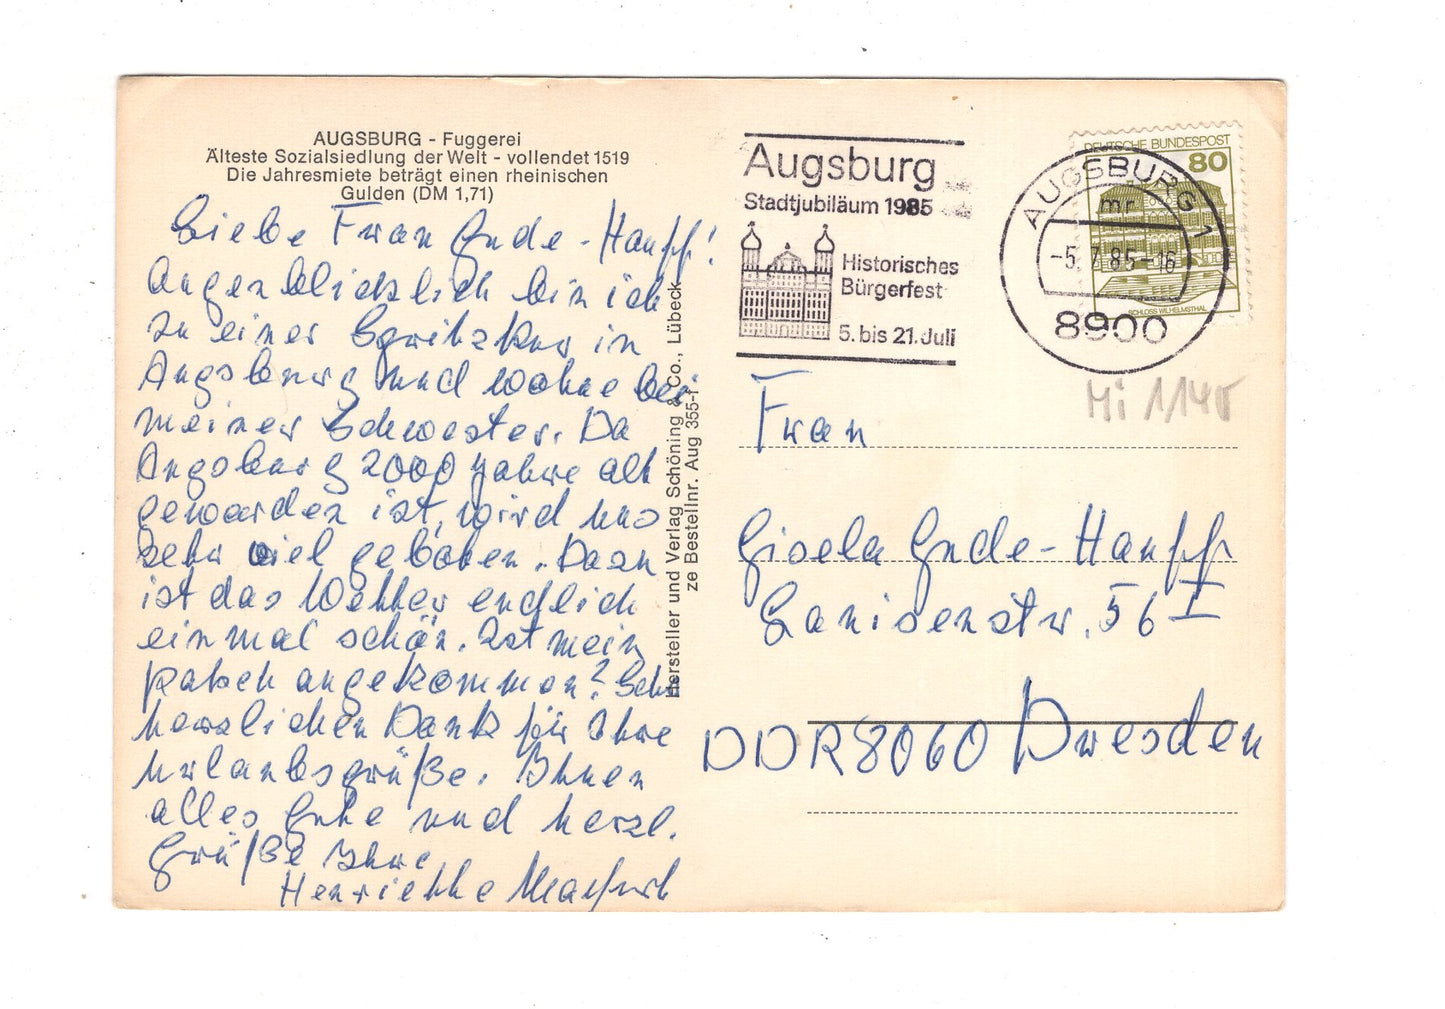 AUGSBURG - Fuggerei
Älteste Sozialsiedlung der Welt - vollendet 1519
Die Jahresmiete beträgt einen rheinischen
Gulden (DM 1,71)
Liebe Frau Gude-Hanpf!
Augenblicklich bin ich
zu einer Spritzkur in
Augsburg und wohne bei
meiner Schwester. Da
Augsburg 2000 Jahre alt
geworden ist, wird uns
sehr viel geboten. Dazu
ist das Wetter endlich
einmal schön. Ist mein
Paket angekommen? Sehr
herzlichen Dank für Ihre
Urlaubsgrüße. Ihnen
alles Gute und herzl.
Grüße Ihre
Henriette
Hersteller und Verlag Schöning & Co., Lübeck
ze Bestellnr. Aug 355-f
Augsburg
Stadtjubiläum 1985
Historisches
Bürgerfest
5. bis 21. Juli
DEUTSCHE BUNDESPOST
80
SCHLOSS WILHELMSTHAL
AUGSBURG 1
mr
-5. 7. 85-16
8900
Mi 1140
Frau
Gisela Gude-Hanpf
56 I
DDR 8060 Dresden